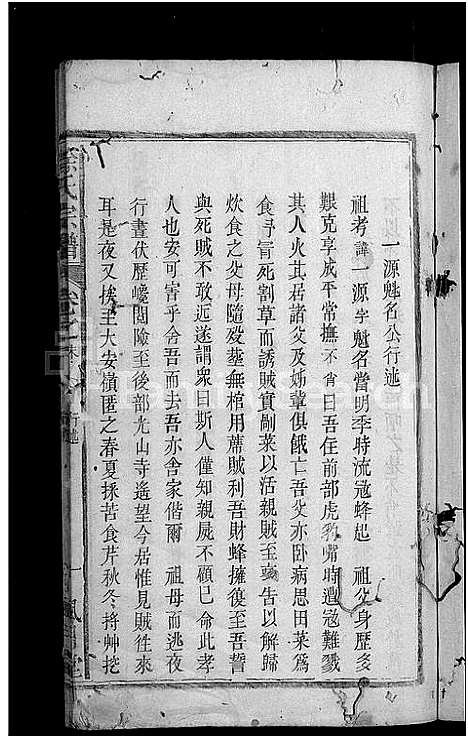 一源魁名公行述
祖考諱一源字魁名當明季時流寇蜂起　祖父身歷多
艱克享成平常撫不肖曰吾住前部虎豹嘷時遭寇難戮
其人火其居諸父及姊輩俱餓亡吾父亦卧病思田菜為
食吾冒死割草而誘賊實剮菜以活親賊至亦告以解歸
炊食之父母隨歿塟無棺用蓆賊利吾財蜂擁復至吾誓
與死賊不敢近遂謂眾曰斯人僅知親屍不顧己命此孝
人也安可害乎舍吾而去吾亦舍家偕爾　祖母而逃夜
行晝伏歷巉閲險至後部光山寺遙望今居惟見賊徃來
耳是夜又挨至大安嶺匿之春夏採苦食芹秋冬捋艸挖
氏宗譜
行述